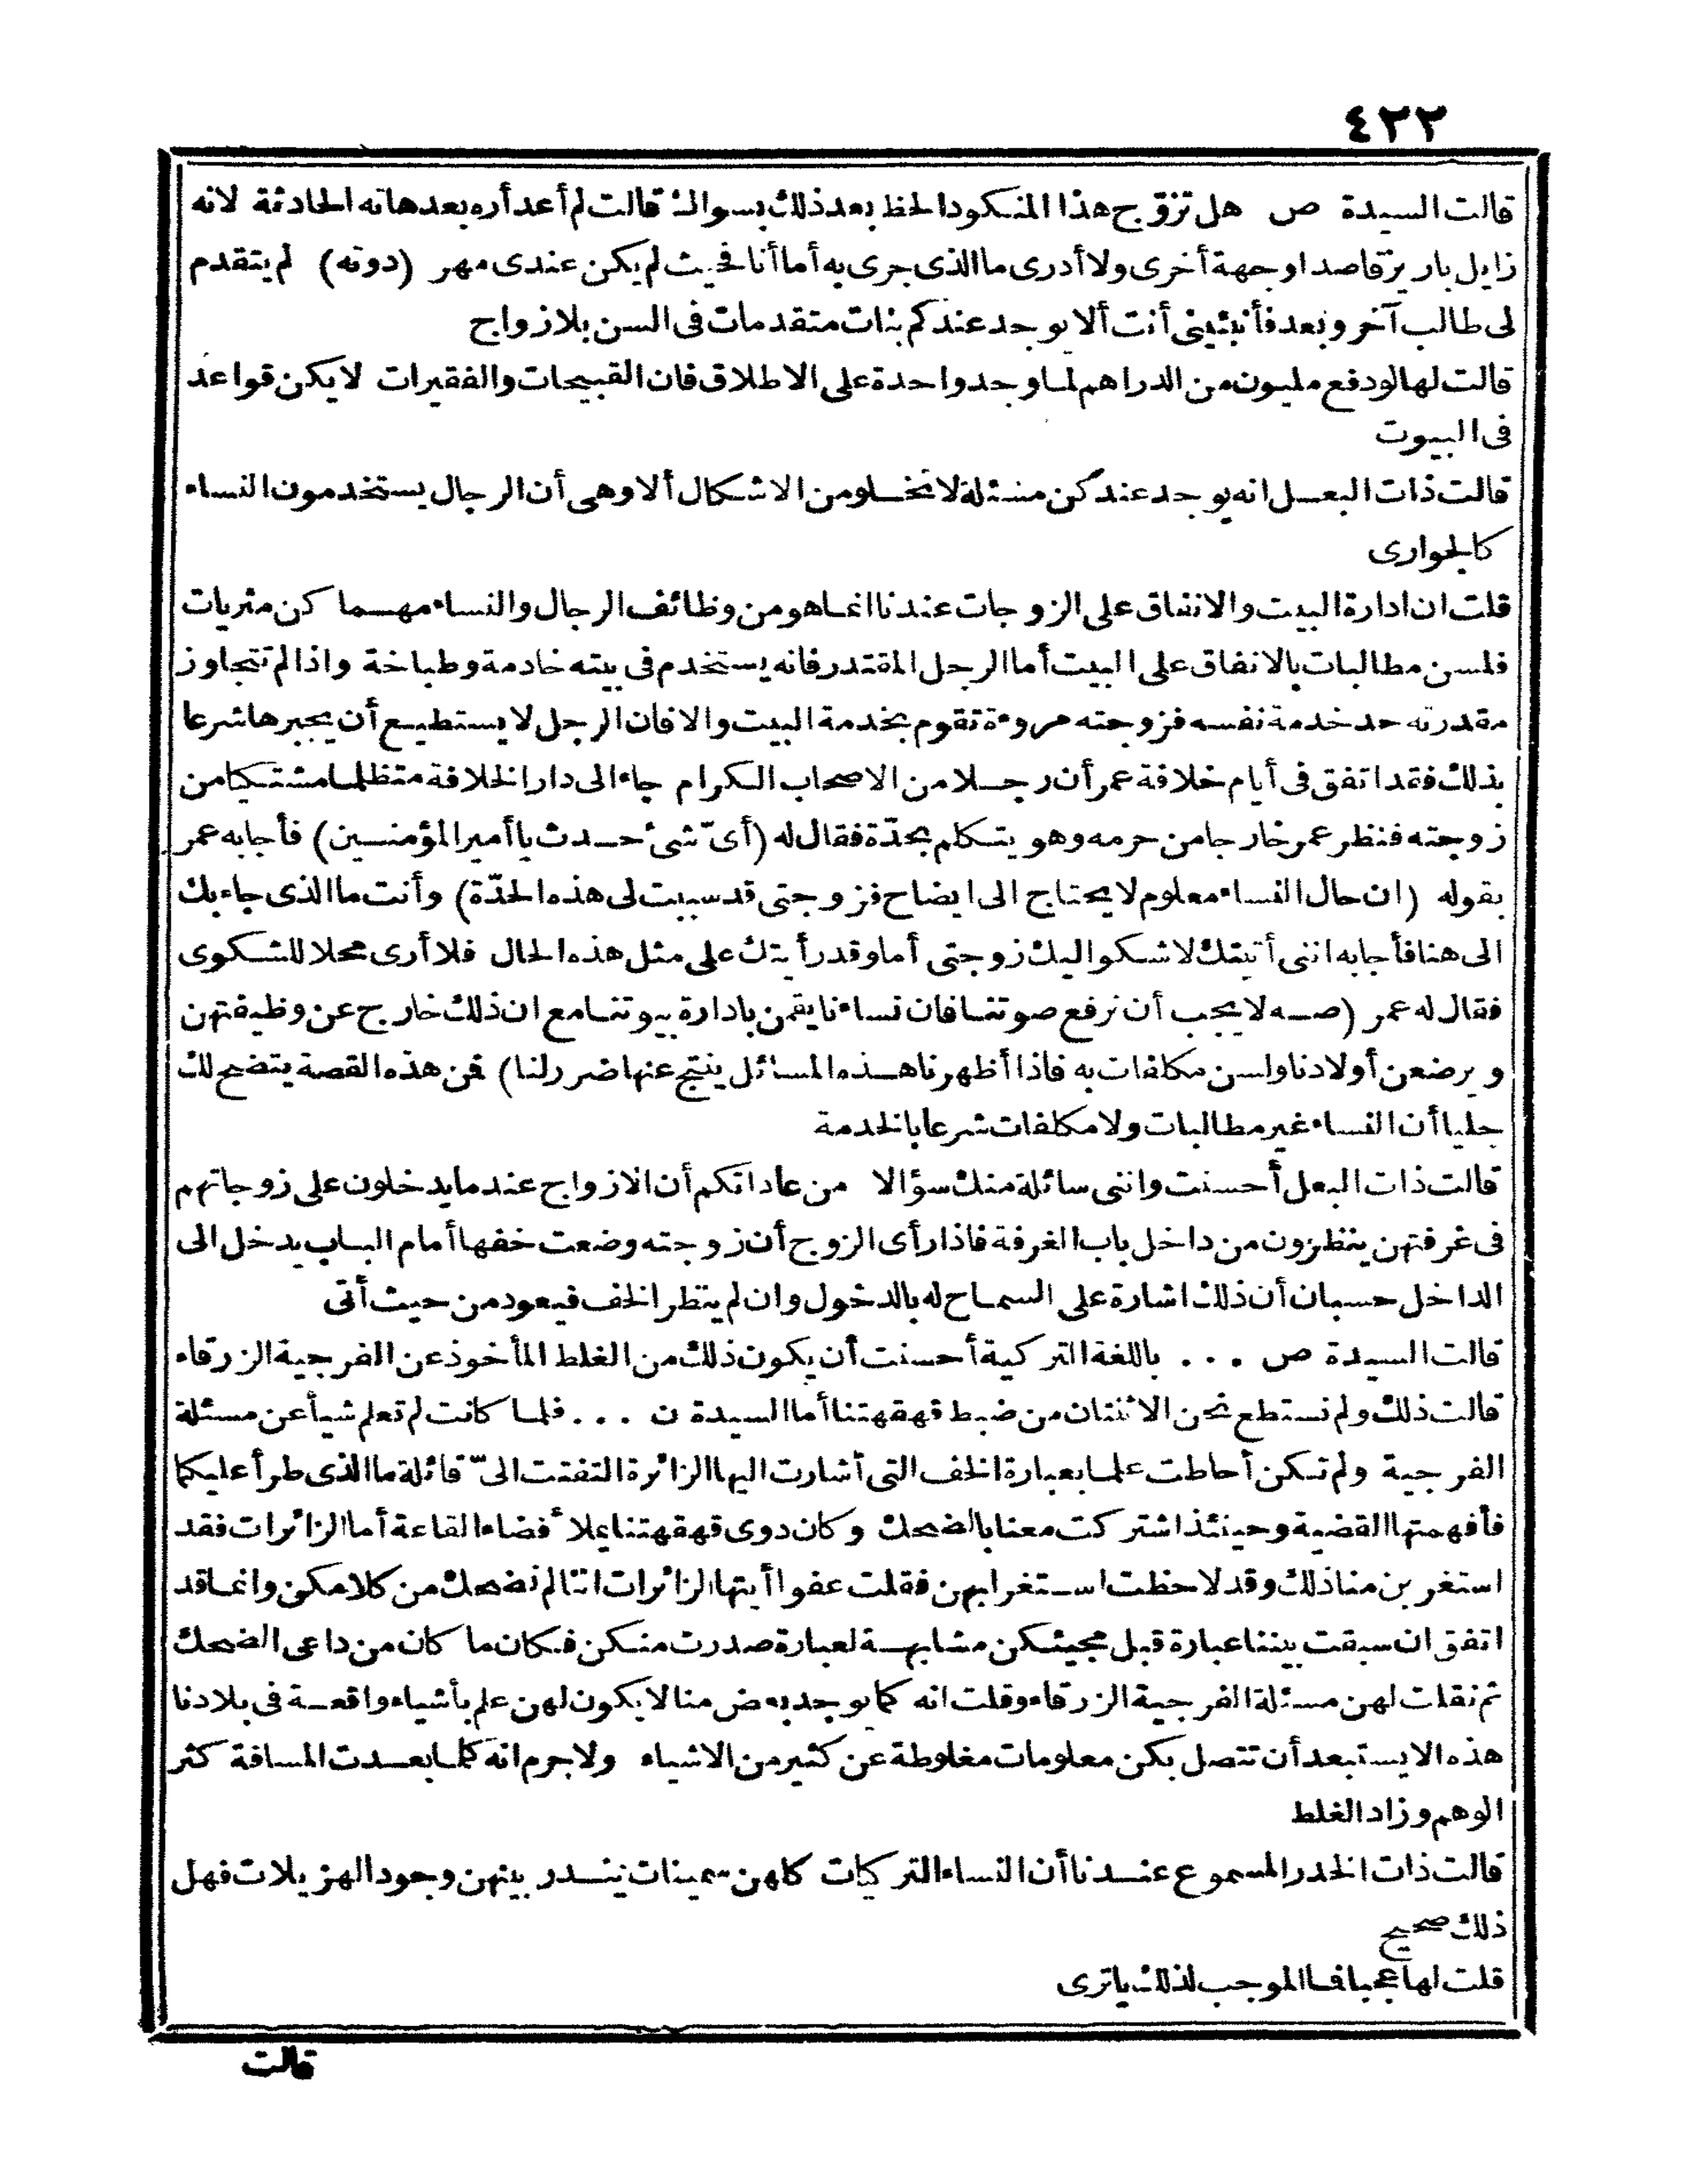 ٤٢٢
قالت السيدة ص هل تزوّج هذا المنكود الحظ بعد ذلك بسواك قالت لم أعد أره بعد هاته الحادثة لانه
زايل باريز قاصدا وجهة أخرى ولا أدرى ما الذى جرى به أما أنا فحيث لم يكن عندى مهر (دوته) لم يتقدم
لى طالب آخر وبعد فأنبئينى أنت ألا يوجد عندكم بنات متقدمات فى السن بلا زواج
قالت لها لو دفع مليون من الدراهم لما وجد واحدة على الاطلاق فان القبيحات والفقيرات لا يكن قواعد
فى البيوت
قالت ذات البعل انه يوجد عندكن مسئلة لا تخلو من الاشكال ألا وهى أن الرجال يستخدمون النساء
كالجوارى
قلت ان ادارة البيت والانفاق على الزوجات عندنا انما هو من وظائف الرجال والنساء مهما كن مثريات
فلسن مطالبات بالانفاق على البيت أما الرجل المقتدر فانه يستخدم فى بيته خادمة وطباخة واذا لم تتجاوز
مقدرته حد خدمة نفسه فزوجته مروءة تقوم بخدمة البيت والا فان الرجل لا يستطيع أن يجبرها شرعا
بذلك فقد اتفق فى أيام خلافة عمر أن رجلا من الاصحاب الكرام جاء الى دار الخلافة متظلما مشتكيا من
زوجته فنظر عمر خارجا من حرمه وهو يتكلم بحدّة فقال له (أىّ شئ حدث يا أمير المؤمنين) فأجابه عمر
بقوله (ان حال النساء معلوم لا يحتاج الى ايضاح فزوجتى قد سببت لى هذه الحدّة) وأنت ما الذى جاء بك
الى هنا فأجابه اننى أتيتك لاشكو اليك زوجتى أما وقد رأيتك على مثل هذه الحال فلا أرى محلا للشكوى
فقال له عمر (صه لا يجب أن نرفع صوتنا فان نساءنا يقمن بادارة بيوتنا مع ان ذلك خارج عن وظيفتهن
ويرضعن أولادنا ولسن مكلفات به فاذا أظهرنا هذه المسائل ينتج عنها ضرر لنا) فمن هذه القصة يتضح لك
جليا أن النساء غير مطالبات ولا مكلفات شرعا بالخدمة
قالت ذات البعل أحسنت واننى سائلة منك سؤالا من عاداتكم أن الازواج عندما يدخلون على زوجاتهم
فى غرفتهن ينظرون من داخل باب الغرفة فاذا رأى الزوج أن زوجته وضعت خفها أمام الباب يدخل الى
الداخل حسبان أن ذلك اشارة على السماح له بالدخول وان لم ينظر الخف فيعود من حيث أتى
قالت السيدة ص . . . باللغة التركية أحسنت أن يكون ذلك من الغلط المأخوذ عن الفرجية الزرقاء
قالت ذلك ولم نستطع نحن الاثنتان من ضبط قهقهتنا أما السيدة ن . . . فلما كانت لم تعلم شيأ عن مسئلة
الفرجية ولم تكن أحاطت علما بعبارة الخف التى أشارت اليها الزائرة التفتت الىّ قائلة ما الذى طرأ عليكما
فأفهمتها القضية وحينئذ اشتركت معنا بالضحك وكان دوى قهقهتنا يملأ فضاء القاعة أما الزائرات فقد
استغربن منا ذلك وقد لاحظت استغرابهن فقلت عفوا أيتها الزائرات اننا لم نضحك من كلامكن وانما قد
اتفق ان سبقت بيننا عبارة قبل مجيئكن مشابهة لعبارة صدرت منكن فكان ما كان من داعى الضحك
ثم نقلت لهن مسئلة الفرجية الزرقاء وقلت انه كما يوجد بعض منا لا يكون لهن علم بأشياء واقعة فى بلادنا
هذه الا يستبعد أن تتصل بكن معلومات مغلوطة عن كثير من الاشياء ولا جرم انه كلما بعدت المسافة كثر
الوهم وزاد الغلط
قالت ذات الخدر المسموع عندنا أن النساء التركيات كلهن سمينات يندر بينهن وجود الهزيلات فهل
ذلك صحيح
قلت لها عجبا فما الموجب لذلك ياترى
قالت